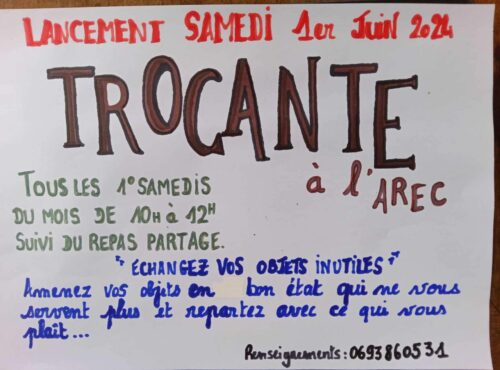 LANCEMENT SAMEDI 1er JUIN 2024
TROCANTE
à l'AREC
TOUS LES 1º SAMEDIS
DU MOIS DE 10H à 12H
SUIVI DU REPAS PARTAGE.
" ÉCHANGEZ VOS OBJETS INUTILES "
Amenez vos objets en bon état qui ne vous
servent plus et repartez avec ce qui vous
plaît...
Renseignements : 0693860531